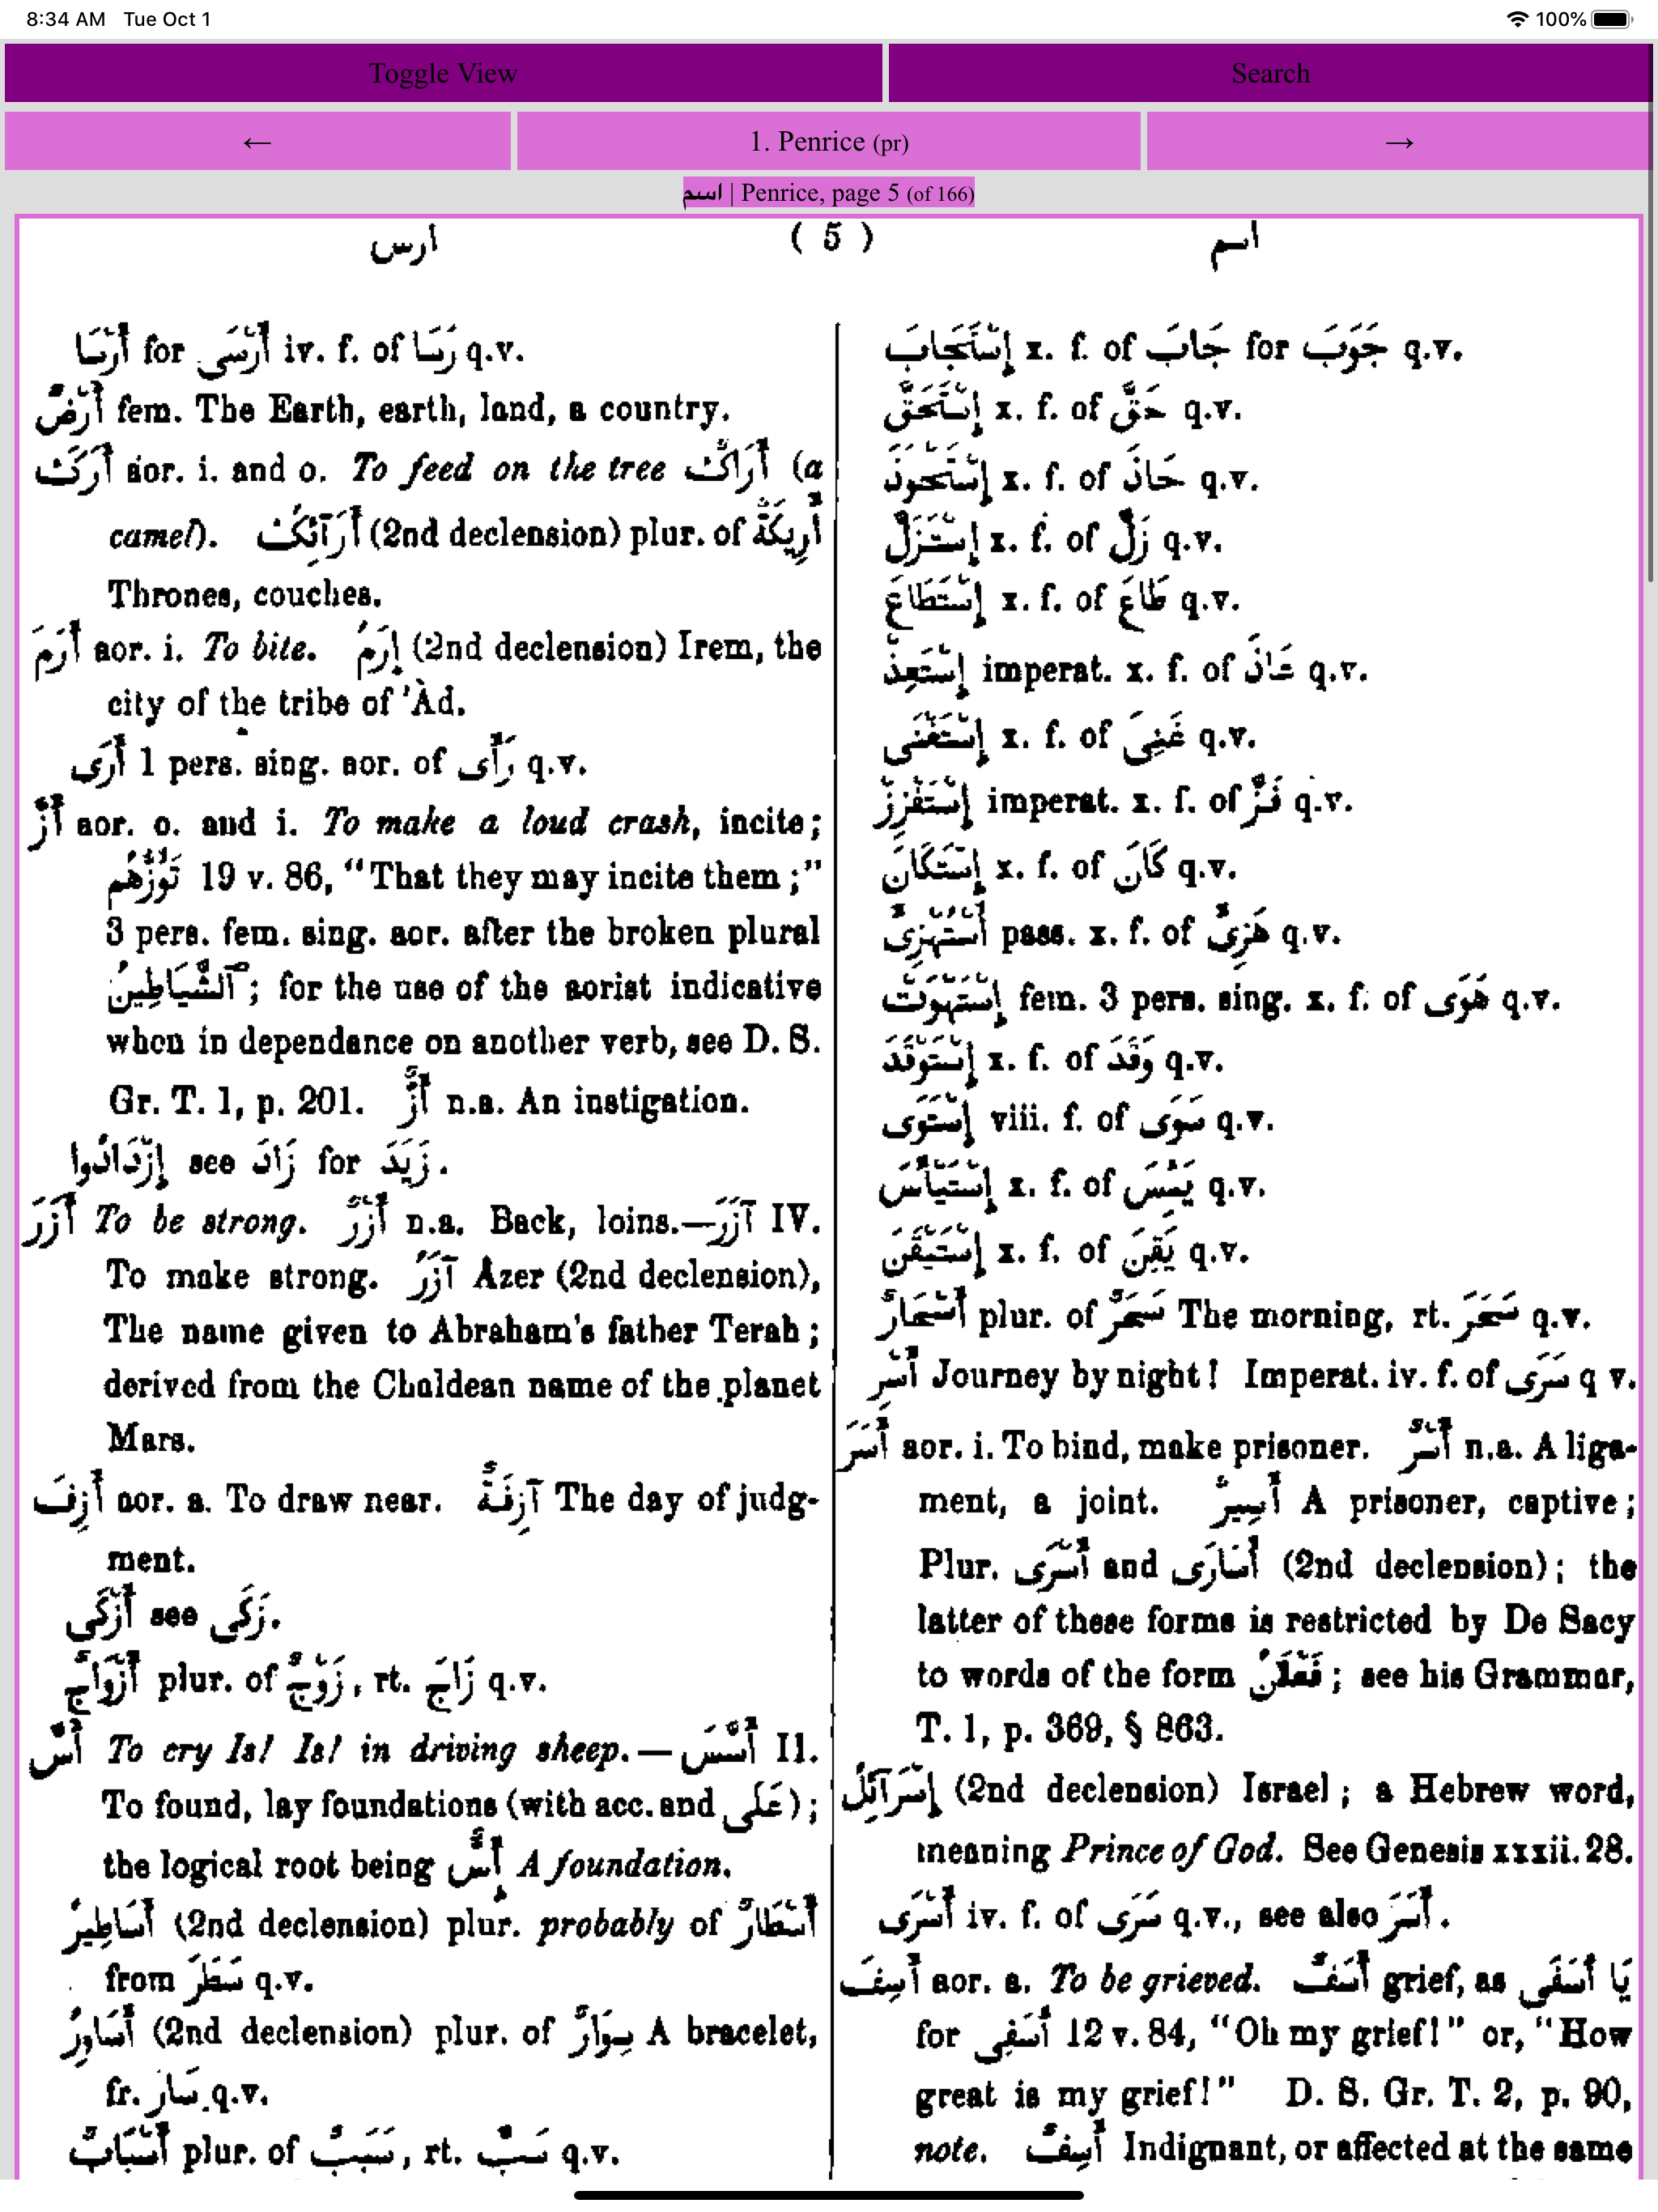 8:34 AM Tue Oct 1
100%
Toggle View
Search
←
1. Penrice (pr)
→
اسم | Penrice, page 5 (of 166)
ارس
( 5 )
اسم
أَرْسَا for أَرْسَى iv. f. of رَسَا q.v.
أَرْضٌ fem. The Earth, earth, land, a country.
أَرَكَ aor. i. and o. To feed on the tree أَرَاكٌ (a
camel). أَرَآئِكُ (2nd declension) plur. of أَرِيكَةٌ
Thrones, couches.
أَرَمَ aor. i. To bite. إِرَمُ (2nd declension) Irem, the
city of the tribe of 'Àd.
أَرَى 1 pers. sing. aor. of رَأَى q.v.
أَزَّ aor. o. and i. To make a loud crash, incite;
تَؤُزُّهُمْ 19 v. 86, "That they may incite them;"
3 pers. fem. sing. aor. after the broken plural
ٱلشَّيَاطِينُ; for the use of the aorist indicative
when in dependance on another verb, see D. S.
Gr. T. 1, p. 201. أَزٌّ n.a. An instigation.
إِزْدَادُوا see زَادَ for زَيَدَ.
أَزَرَ To be strong. أَزْرٌ n.a. Back, loins.—آزَرَ IV.
To make strong. آزَرُ Azer (2nd declension),
The name given to Abraham's father Terah;
derived from the Chaldean name of the planet
Mars.
أَزِفَ aor. a. To draw near. آزِفَةٌ The day of judg-
ment.
أَزْكَى see زَكَى.
أَزْوَاجٌ plur. of زَوْجٌ, rt. زَاجَ q.v.
أَسَّ To cry Is! Is! in driving sheep.—أَسَّسَ II.
To found, lay foundations (with acc. and عَلَى);
the logical root being إِسٌّ A foundation.
أَسَاطِيرُ (2nd declension) plur. probably of أَسْطَارٌ
from سَطَرَ q.v.
أَسَاوِرُ (2nd declension) plur. of سِوَارٌ A bracelet,
fr. سَارَ q.v.
أَسْبَابٌ plur. of سَبَبٌ, rt. سَبَّ q.v.
إِسْتَجَابَ x. f. of جَابَ for جَوَبَ q.v.
إِسْتَحَقَّ x. f. of حَقَّ q.v.
إِسْتَحْوَذَ x. f. of حَاذَ q.v.
إِسْتَزَلَّ x. f. of زَلَّ q.v.
إِسْتَطَاعَ x. f. of طَاعَ q.v.
إِسْتَعِذْ imperat. x. f. of عَاذَ q.v.
إِسْتَغْنَى x. f. of غَنِىَ q.v.
إِسْتَفْزِزْ imperat. x. f. of فَزَّ q.v.
إِسْتَكَانَ x. f. of كَانَ q.v.
أُسْتُهْزِئَ pass. x. f. of هَزِئَ q.v.
إِسْتَهْوَتْ fem. 3 pers. sing. x. f. of هَوَى q.v.
إِسْتَوْقَدَ x. f. of وَقَدَ q.v.
إِسْتَوَى viii. f. of سَوَى q.v.
إِسْتَيْأَسَ x. f. of يَئِسَ q.v.
إِسْتَيْقَنَ x. f. of يَقِنَ q.v.
أَسْحَارٌ plur. of سَحَرٌ The morning, rt. سَحَرَ q.v.
أَسْرِ Journey by night! Imperat. iv. f. of سَرَى q v.
أَسَرَ aor. i. To bind, make prisoner. أَسْرٌ n.a. A liga-
ment, a joint. أَسِيرٌ A prisoner, captive;
Plur. أَسْرَى and أُسَارَى (2nd declension); the
latter of these forms is restricted by De Sacy
to words of the form فَعْلَانُ; see his Grammar,
T. 1, p. 369, § 863.
إِسْرَآئِلُ (2nd declension) Israel; a Hebrew word,
meaning Prince of God. See Genesis xxxii. 28.
أَسْرَى iv. f. of سَرَى q.v., see also أَسَرَ.
أَسِفَ aor. a. To be grieved. أَسَفٌ grief, as يَا أَسَفَى
for أَسَفِى 12 v. 84, "Oh my grief!" or, "How
great is my grief!" D. S. Gr. T. 2, p. 90,
note. أَسِفٌ Indignant, or affected at the same